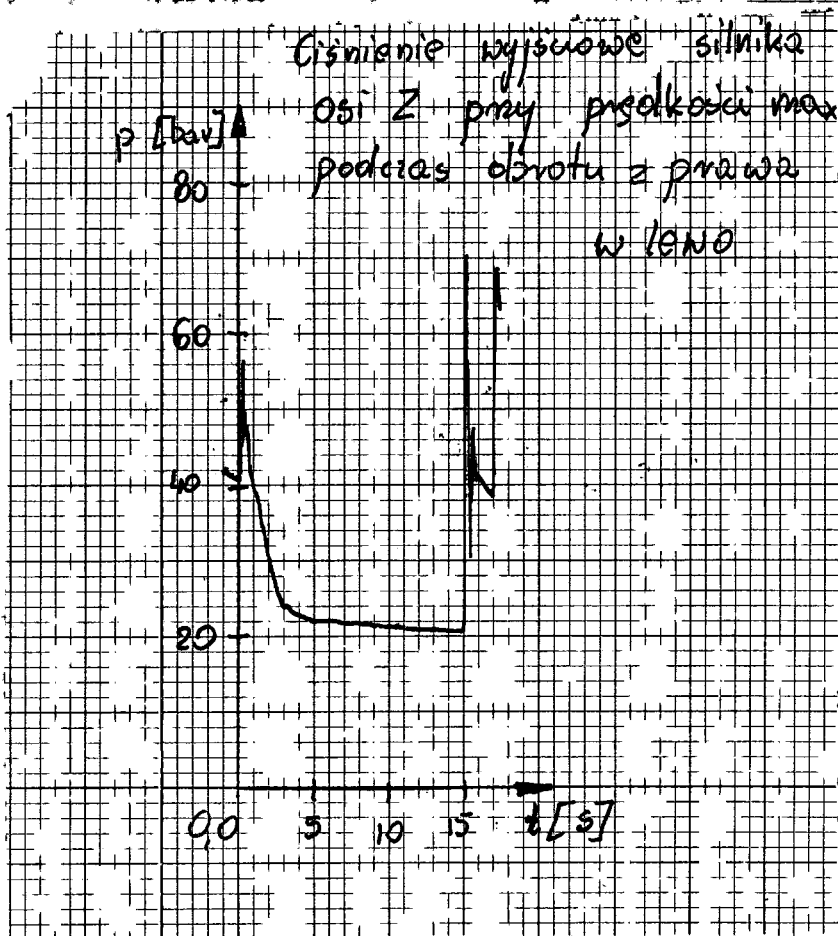 Ciśnienie wyjściowe silnika
osi Z przy prędkości max
podczas obrotu z prawa
w lewo
p [bar]
80
60
40
20
0,0 5 10 15 t [s]